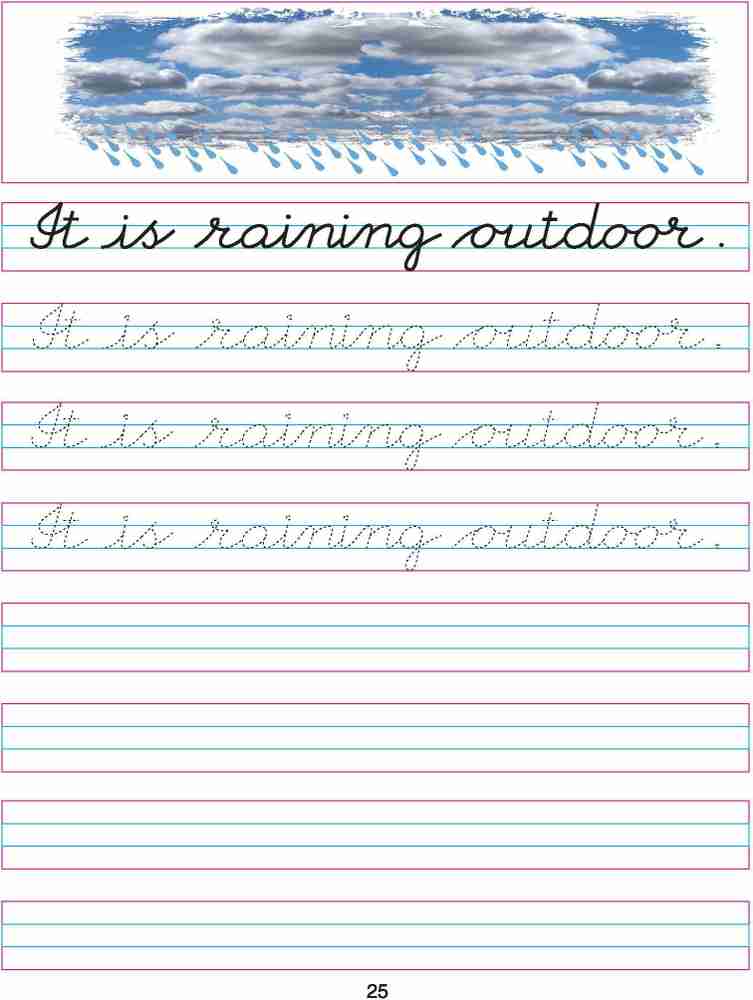 It is raining outdoor .
It is raining outdoor.
It is raining outdoor.
It is raining outdoor.
25